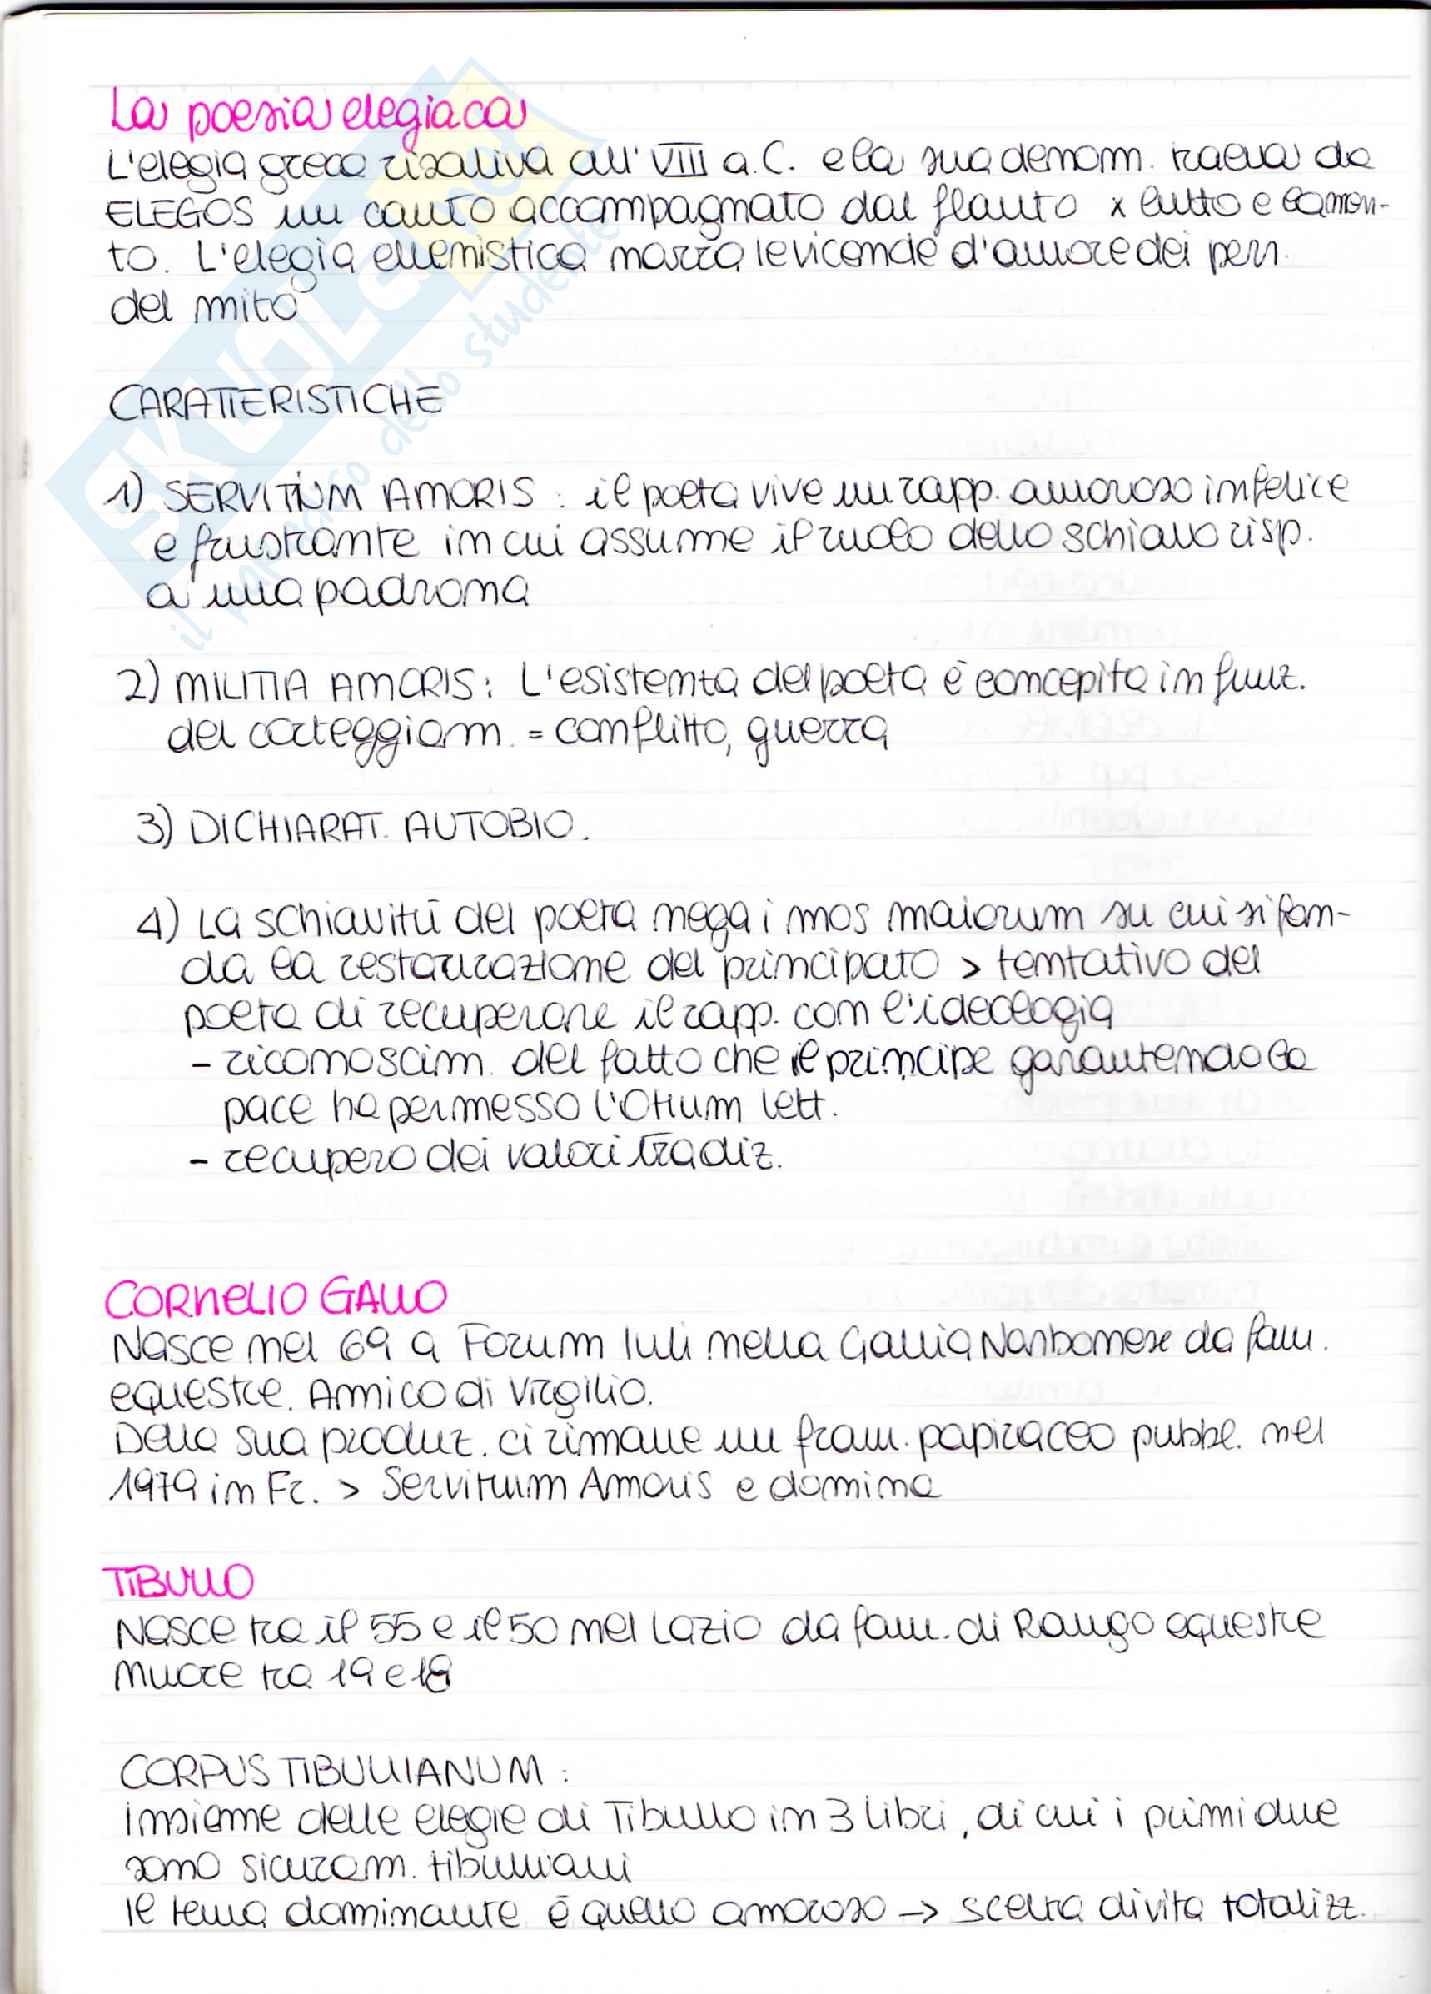 La poesia elegiaca
L'elegia greca risaliva all' VIII a.C. e la sua denom. traeva da
ELEGOS un canto accompagnato dal flauto x lutto e lamen-
to. L'elegia ellenistica narra le vicende d'amore dei pers.
del mito
CARATTERISTICHE
1) SERVITIUM AMORIS : il poeta vive un rapp. amoroso infelice
e frustrante in cui assume il ruolo dello schiavo risp.
a una padrona
2) MILITIA AMORIS: L'esistenza del poeta è concepita in funz.
del corteggiam. = conflitto, guerra
3) DICHIARAT. AUTOBIO.
4) La schiavitù del poeta nega i mos maiorum su cui si fon-
da la restaurazione del principato > tentativo del
poeta di recuperare il rapp. con l'ideologia
- riconoscim. del fatto che il principe garantendo la
pace ha permesso l'Otium lett.
- recupero dei valori tradiz.
CORNELIO GALLO
Nasce nel 69 a Forum Iuli nella Gallia Narbonese da fam.
equestre. Amico di Virgilio.
Della sua produz. ci rimane un fram. papiraceo pubbl. nel
1979 in Fr. > Servitium Amoris e domina
TIBULLO
Nasce tra il 55 e il 50 nel Lazio da fam. di Rango equestre
muore tra 19 e 18
CORPUS TIBULLIANUM :
Insieme delle elegie di Tibullo in 3 libri, di cui i primi due
sono sicuram. tibulliani
Il tema dominante è quello amoroso -> scelta di vita totalizz.
SKUOLA.net
il paradiso dello studente